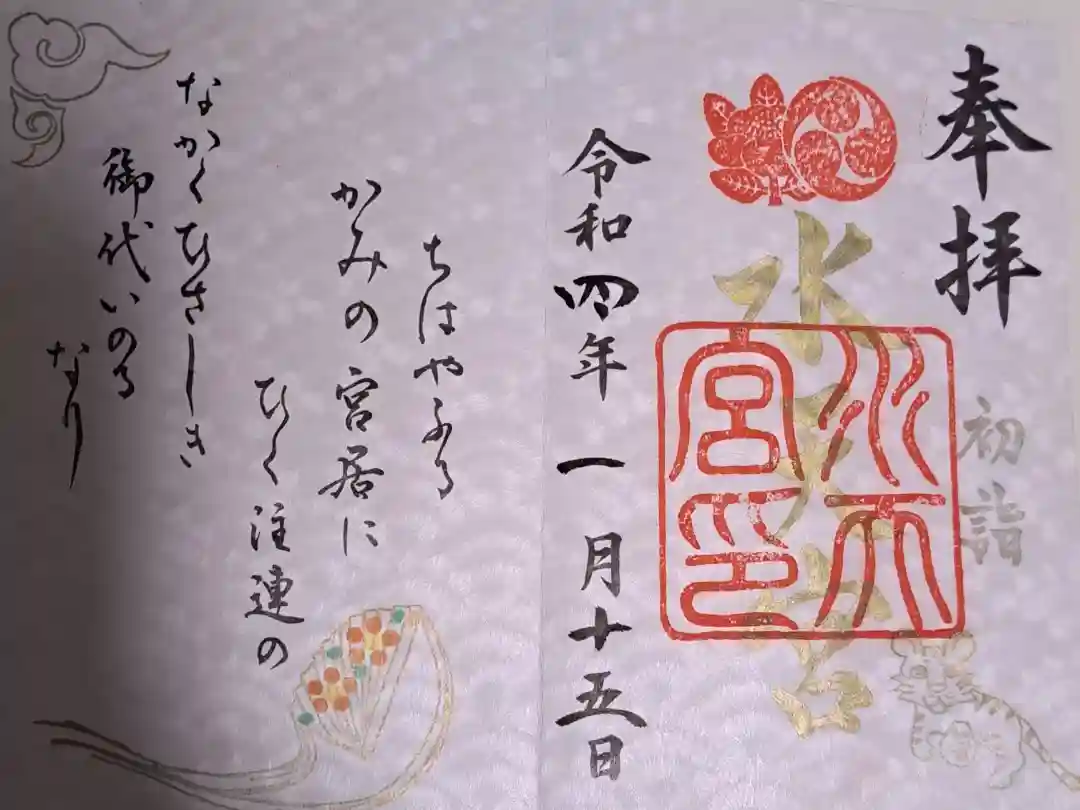 奉拝
初詣
水天宮
水天宮印
令和四年一月十五日
ちはやふる
かみの宮居に
ひく注連の
なかくひさしき
御代いのる
なり